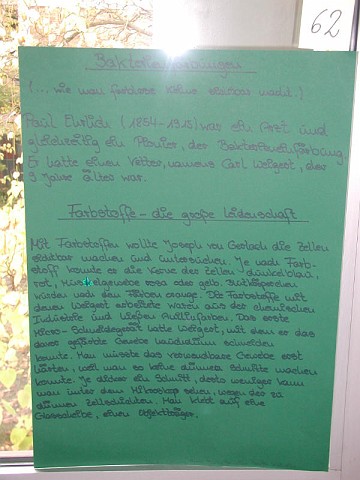 62
Bakterienfärbungen
(... wie man farblose Keime sichtbar macht.)
Paul Ehrlich (1854-1915) war ein Arzt und
gleichzeitig ein Pionier, der Bakterienfärbung.
Er hatte einen Vetter, namens Carl Weigert, der
9 Jahre älter war.
Farbstoffe - die große Leidenschaft
Mit Farbstoffen wollte Joseph von Gerlach die Zellen
sichtbar machen und untersuchen. Je nach Farb-
stoff konnte er die Kerne der Zellen dunkelblau,
rot, Muskelgewebe rosa oder gelb. Blutkörperchen
würden nach dem Färben orange. Die Farbstoffe mit
denen Weigert arbeitete waren aus der chemischen
Industrie und hießen Anilinfarben. Das erste
Micro-Schneidegerät hatte Weigert, mit dem er das
derart gefärbte Gewebe hauchdünn schneiden
konnte. Man musste das verwendbare Gewebe erst
härten, weil man so keine dünnen Schnitte machen
konnte. Je dicker ein Schnitt, desto weniger kann
man unter dem Mikroskop sehen, wegen der zu
dünnen Zellschichten. Man klebt auf eine
Glasscheibe, einen Objektträger.